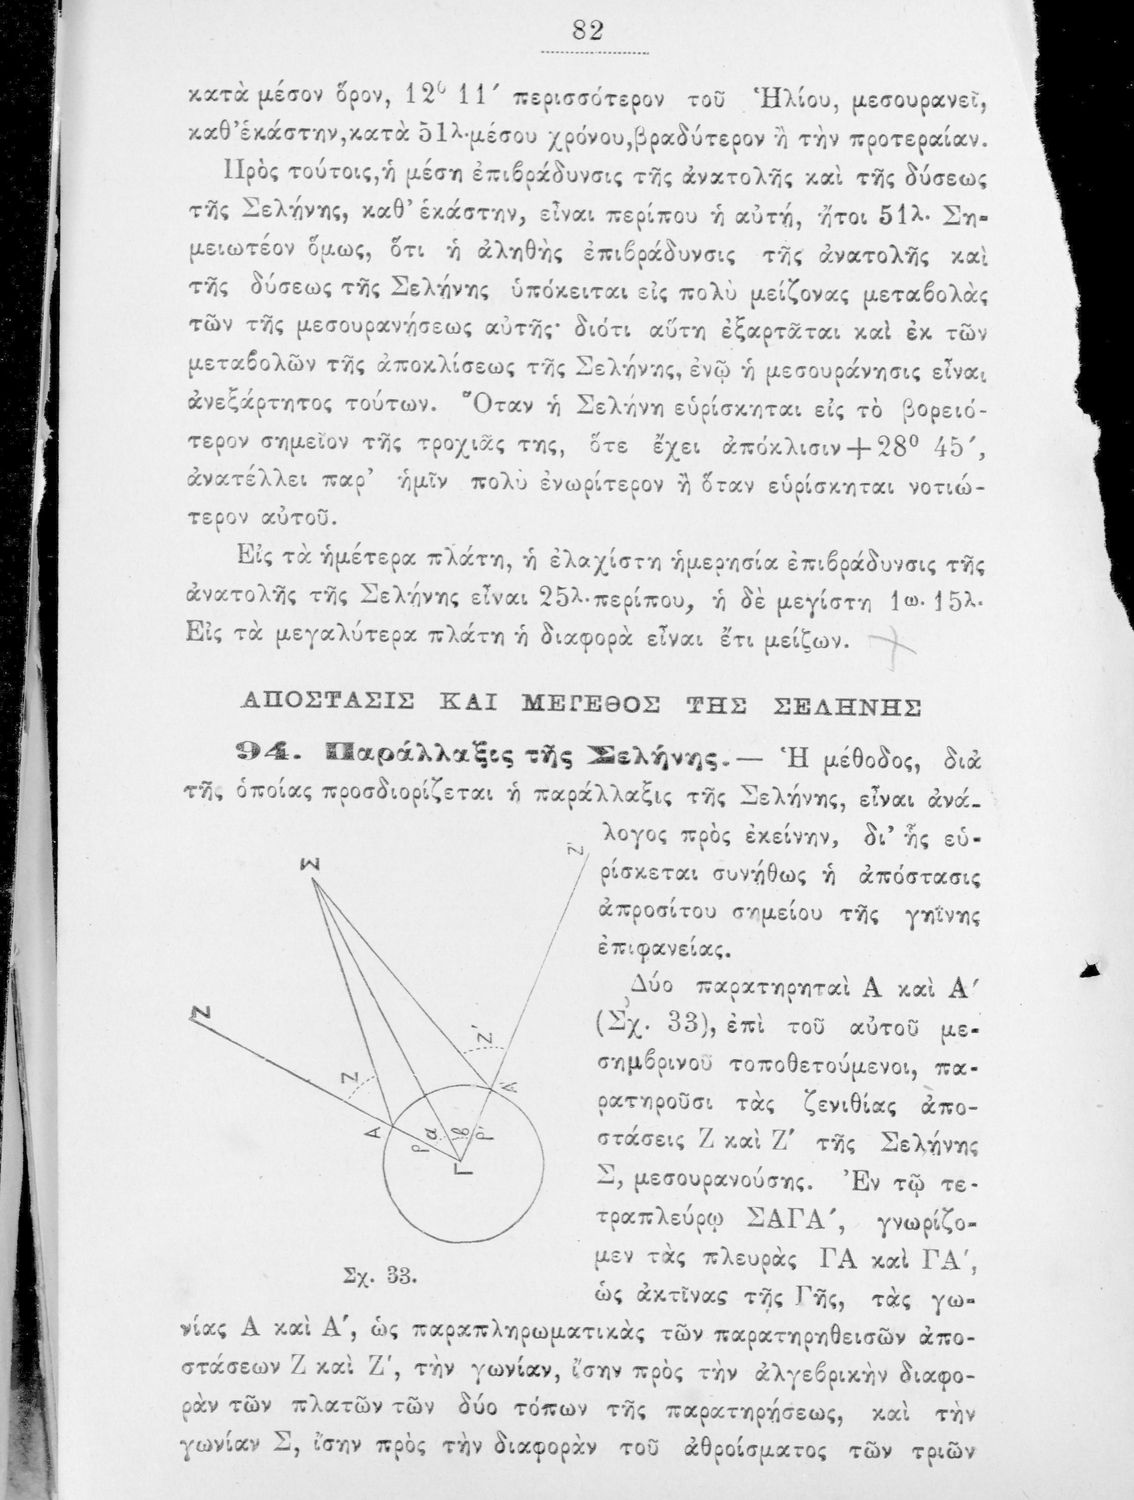 82
κατὰ μέσον ὅρον, 12⁰ 11′ περισσότερον τοῦ Ἡλίου, μεσουρανεῖ,
καθ' ἑκάστην, κατὰ 51λ. μέσου χρόνου, βραδύτερον ἢ τὴν προτεραίαν.
Πρὸς τούτοις, ἡ μέση ἐπιβράδυνσις τῆς ἀνατολῆς καὶ τῆς δύσεως
τῆς Σελήνης, καθ' ἑκάστην, εἶναι περίπου ἡ αὐτή, ἤτοι 51λ. Ση-
μειωτέον ὅμως, ὅτι ἡ ἀληθὴς ἐπιβράδυνσις τῆς ἀνατολῆς καὶ
τῆς δύσεως τῆς Σελήνης ὑπόκειται εἰς πολὺ μείζονας μεταβολὰς
τῶν τῆς μεσουρανήσεως αὐτῆς· διότι αὕτη ἐξαρτᾶται καὶ ἐκ τῶν
μεταβολῶν τῆς ἀποκλίσεως τῆς Σελήνης, ἐνῷ ἡ μεσουράνησις εἶναι
ἀνεξάρτητος τούτων. Ὅταν ἡ Σελήνη εὑρίσκηται εἰς τὸ βορειό-
τερον σημεῖον τῆς τροχιᾶς της, ὅτε ἔχει ἀπόκλισιν +28⁰ 45′,
ἀνατέλλει παρ' ἡμῖν πολὺ ἐνωρίτερον ἢ ὅταν εὑρίσκηται νοτιώ-
τερον αὐτοῦ.
Εἰς τὰ ἡμέτερα πλάτη, ἡ ἐλαχίστη ἡμερησία ἐπιβράδυνσις τῆς
ἀνατολῆς τῆς Σελήνης εἶναι 25λ. περίπου, ἡ δὲ μεγίστη 1ω. 15λ.
Εἰς τὰ μεγαλύτερα πλάτη ἡ διαφορὰ εἶναι ἔτι μείζων.
ΑΠΟΣΤΑΣΙΣ ΚΑΙ ΜΕΓΕΘΟΣ ΤΗΣ ΣΕΛΗΝΗΣ
94. Παράλλαξις τῆς Σελήνης.— Ἡ μέθοδος, διὰ
τῆς ὁποίας προσδιορίζεται ἡ παράλλαξις τῆς Σελήνης, εἶναι ἀνά-
λογος πρὸς ἐκείνην, δι' ἧς εὑ-
ρίσκεται συνήθως ἡ ἀπόστασις
ἀπροσίτου σημείου τῆς γηΐνης
ἐπιφανείας.
Δύο παρατηρηταὶ Α καὶ Α′
(Σχ. 33), ἐπὶ τοῦ αὐτοῦ με-
σημβρινοῦ τοποθετούμενοι, πα-
ρατηροῦσι τὰς ζενιθίας ἀπο-
στάσεις Ζ καὶ Ζ′ τῆς Σελήνης
Σ, μεσουρανούσης. Ἐν τῷ τε-
τραπλεύρῳ ΣΑΓΑ′, γνωρίζο-
μεν τὰς πλευρὰς ΓΑ καὶ ΓΑ′,
ὡς ἀκτῖνας τῆς Γῆς, τὰς γω-
Σ
Ζ
Ζ′
Ζ
Ζ′
Α
Α′
ρ
α
β
ρ′
Γ
Σχ. 33.
νίας Α καὶ Α′, ὡς παραπληρωματικὰς τῶν παρατηρηθεισῶν ἀπο-
στάσεων Ζ καὶ Ζ′, τὴν γωνίαν, ἴσην πρὸς τὴν ἀλγεβρικὴν διαφο-
ρὰν τῶν πλατῶν τῶν δύο τόπων τῆς παρατηρήσεως, καὶ τὴν
γωνίαν Σ, ἴσην πρὸς τὴν διαφορὰν τοῦ ἀθροίσματος τῶν τριῶν